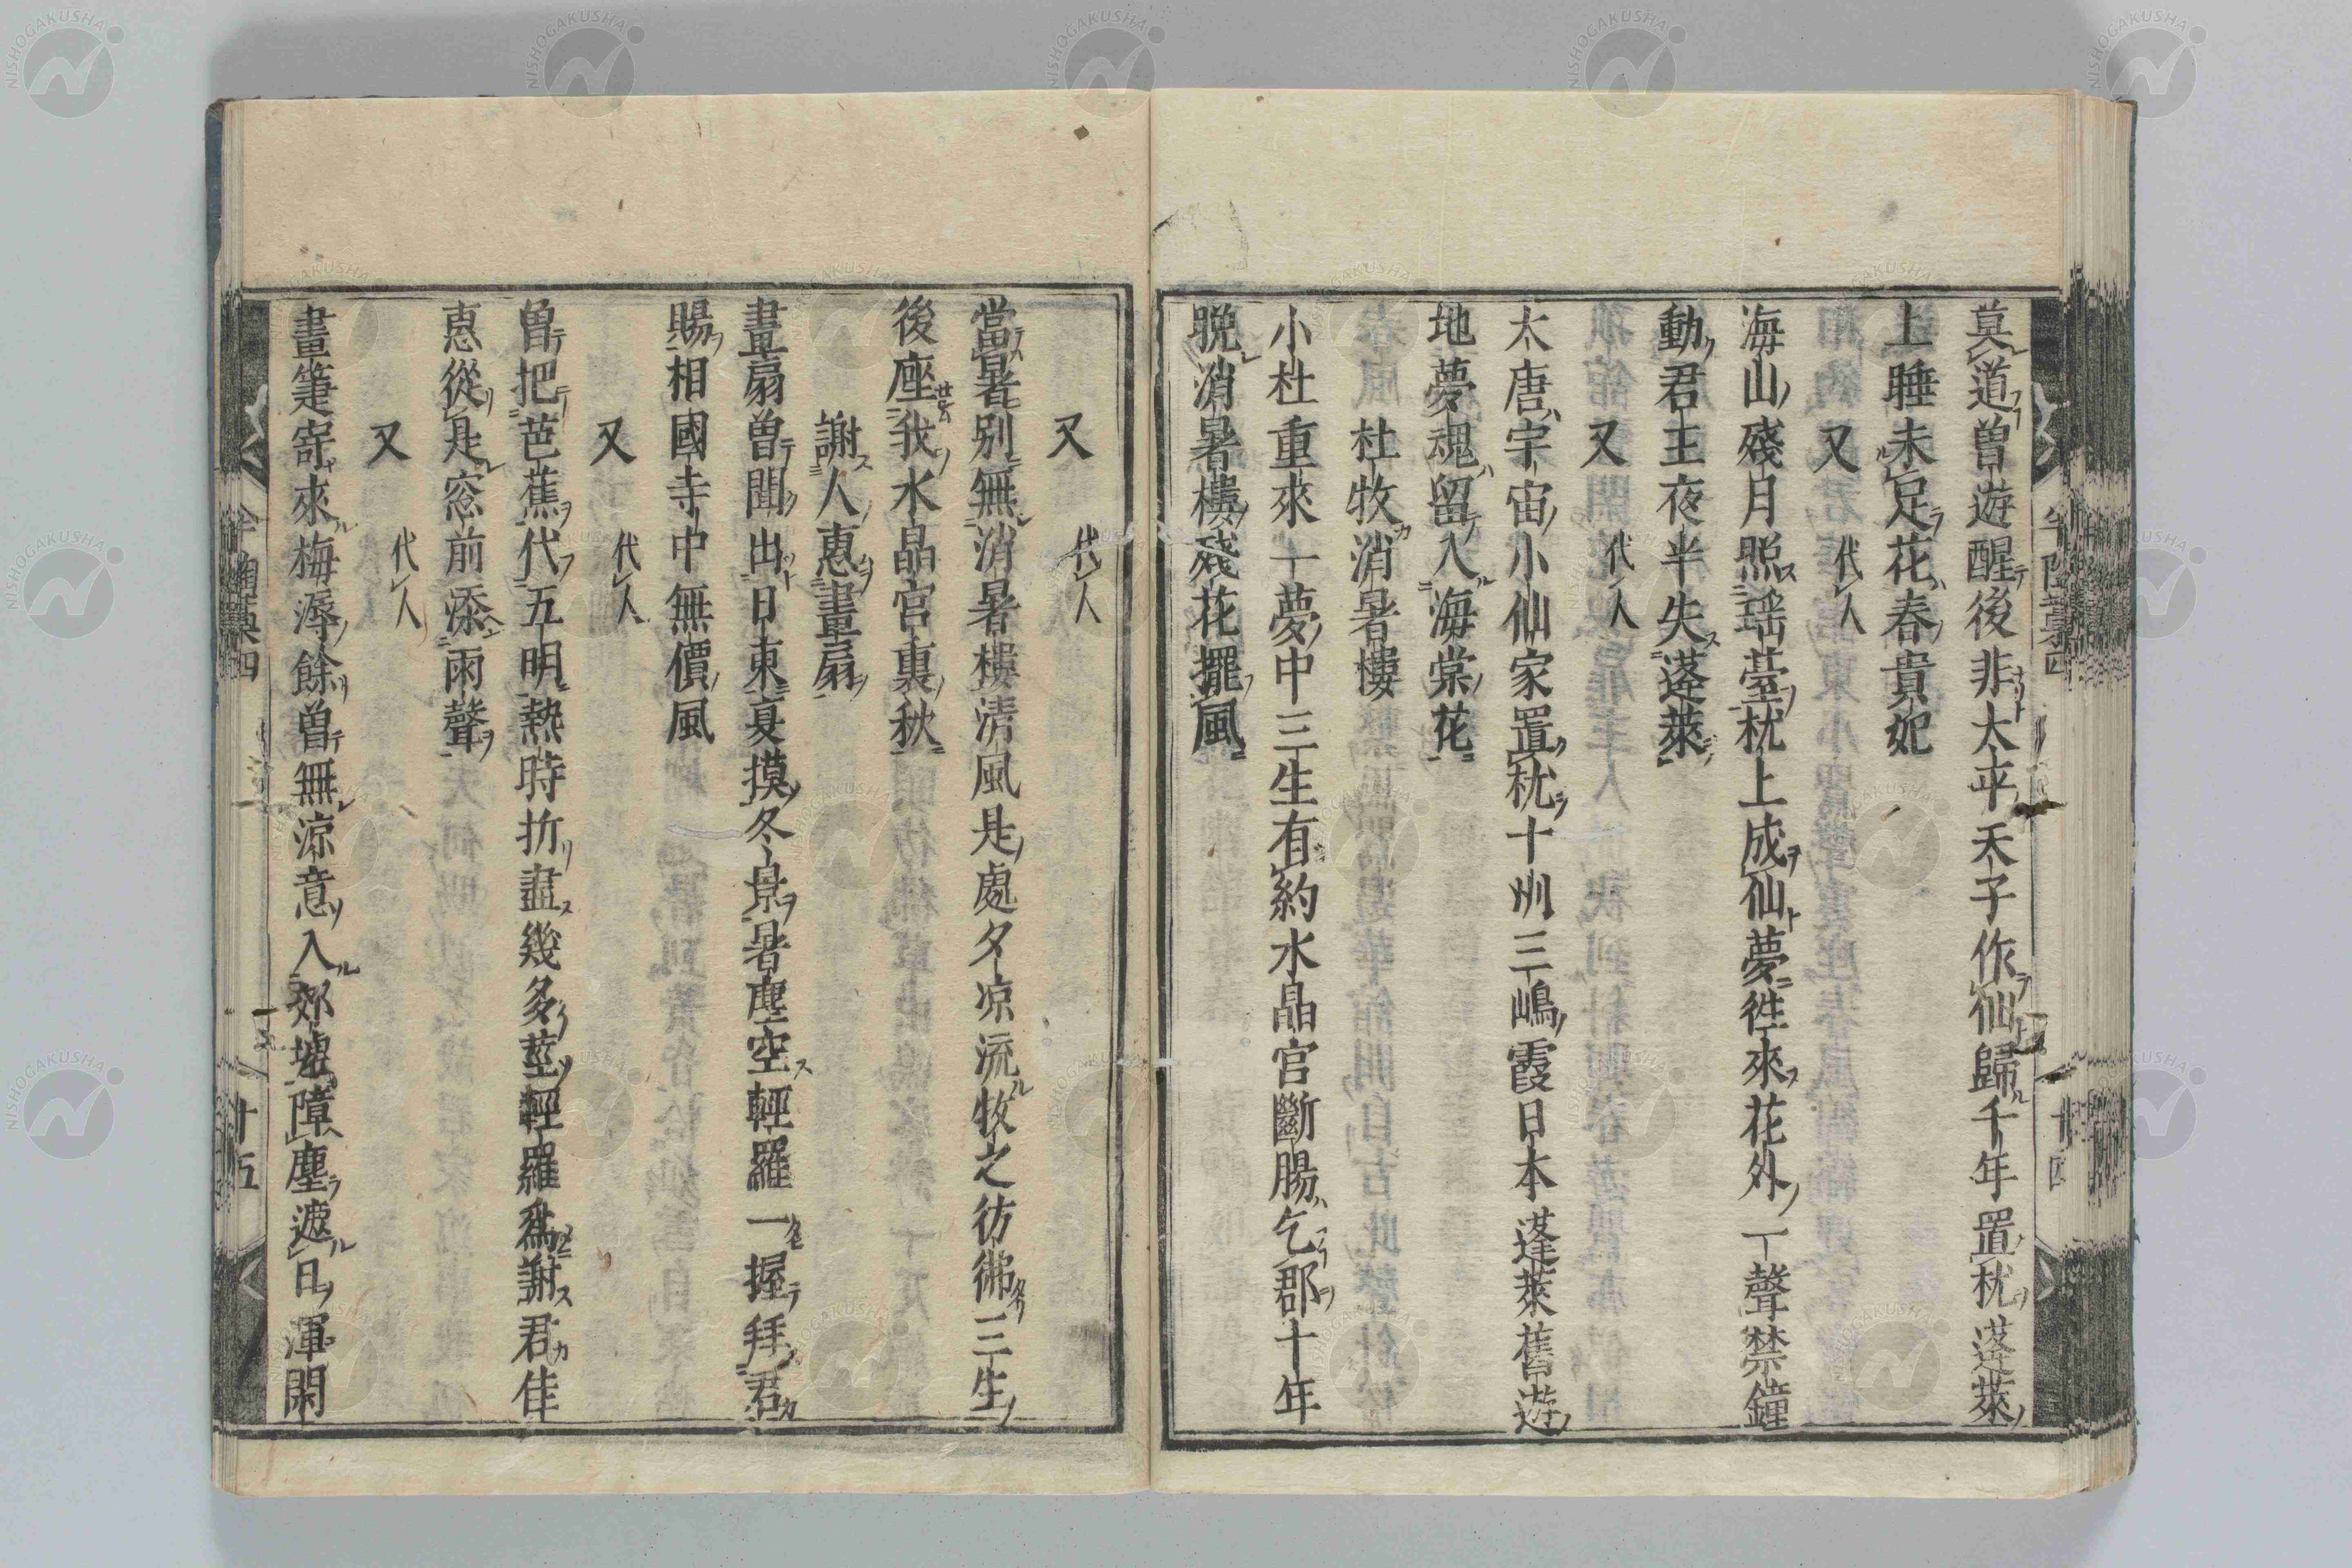 莫道曽遊醒後非大平天子作仙歸千年置枕蓬萊
上睡未足花春貴妃
又 代人
海山殘月照瑶臺枕上成仙夢徃來花外一聲禁鐘
動君王夜半失蓬萊
又 代人
大唐宇宙小仙家置枕十洲三嶋霞日本蓬萊舊遊
地夢魂留入海棠花
杜牧消暑樓
小杜重來一夢中三生有約水晶宮斷腸乞郡十年
晚消暑樓殘花擺風
又 代人
當暑別無消暑樓清風是處夕凉流牧之彷彿三生
後座我水晶宮裏秋
謝人惠畫扇
畫扇曽聞出日東夏摸冬景暑塵空輕羅一握拜君
賜相國寺中無價風
又 代人
曽把芭蕉代五明熱時折盡幾多莖輕羅爲謝君佳
惠從是窓前添雨聲
又 代人
畫筆寄來梅溽餘曽無涼意入郊墟障塵遮日渾閑
半陶藁四
十四
半陶藁四
十五
NISHOGAKUSHA